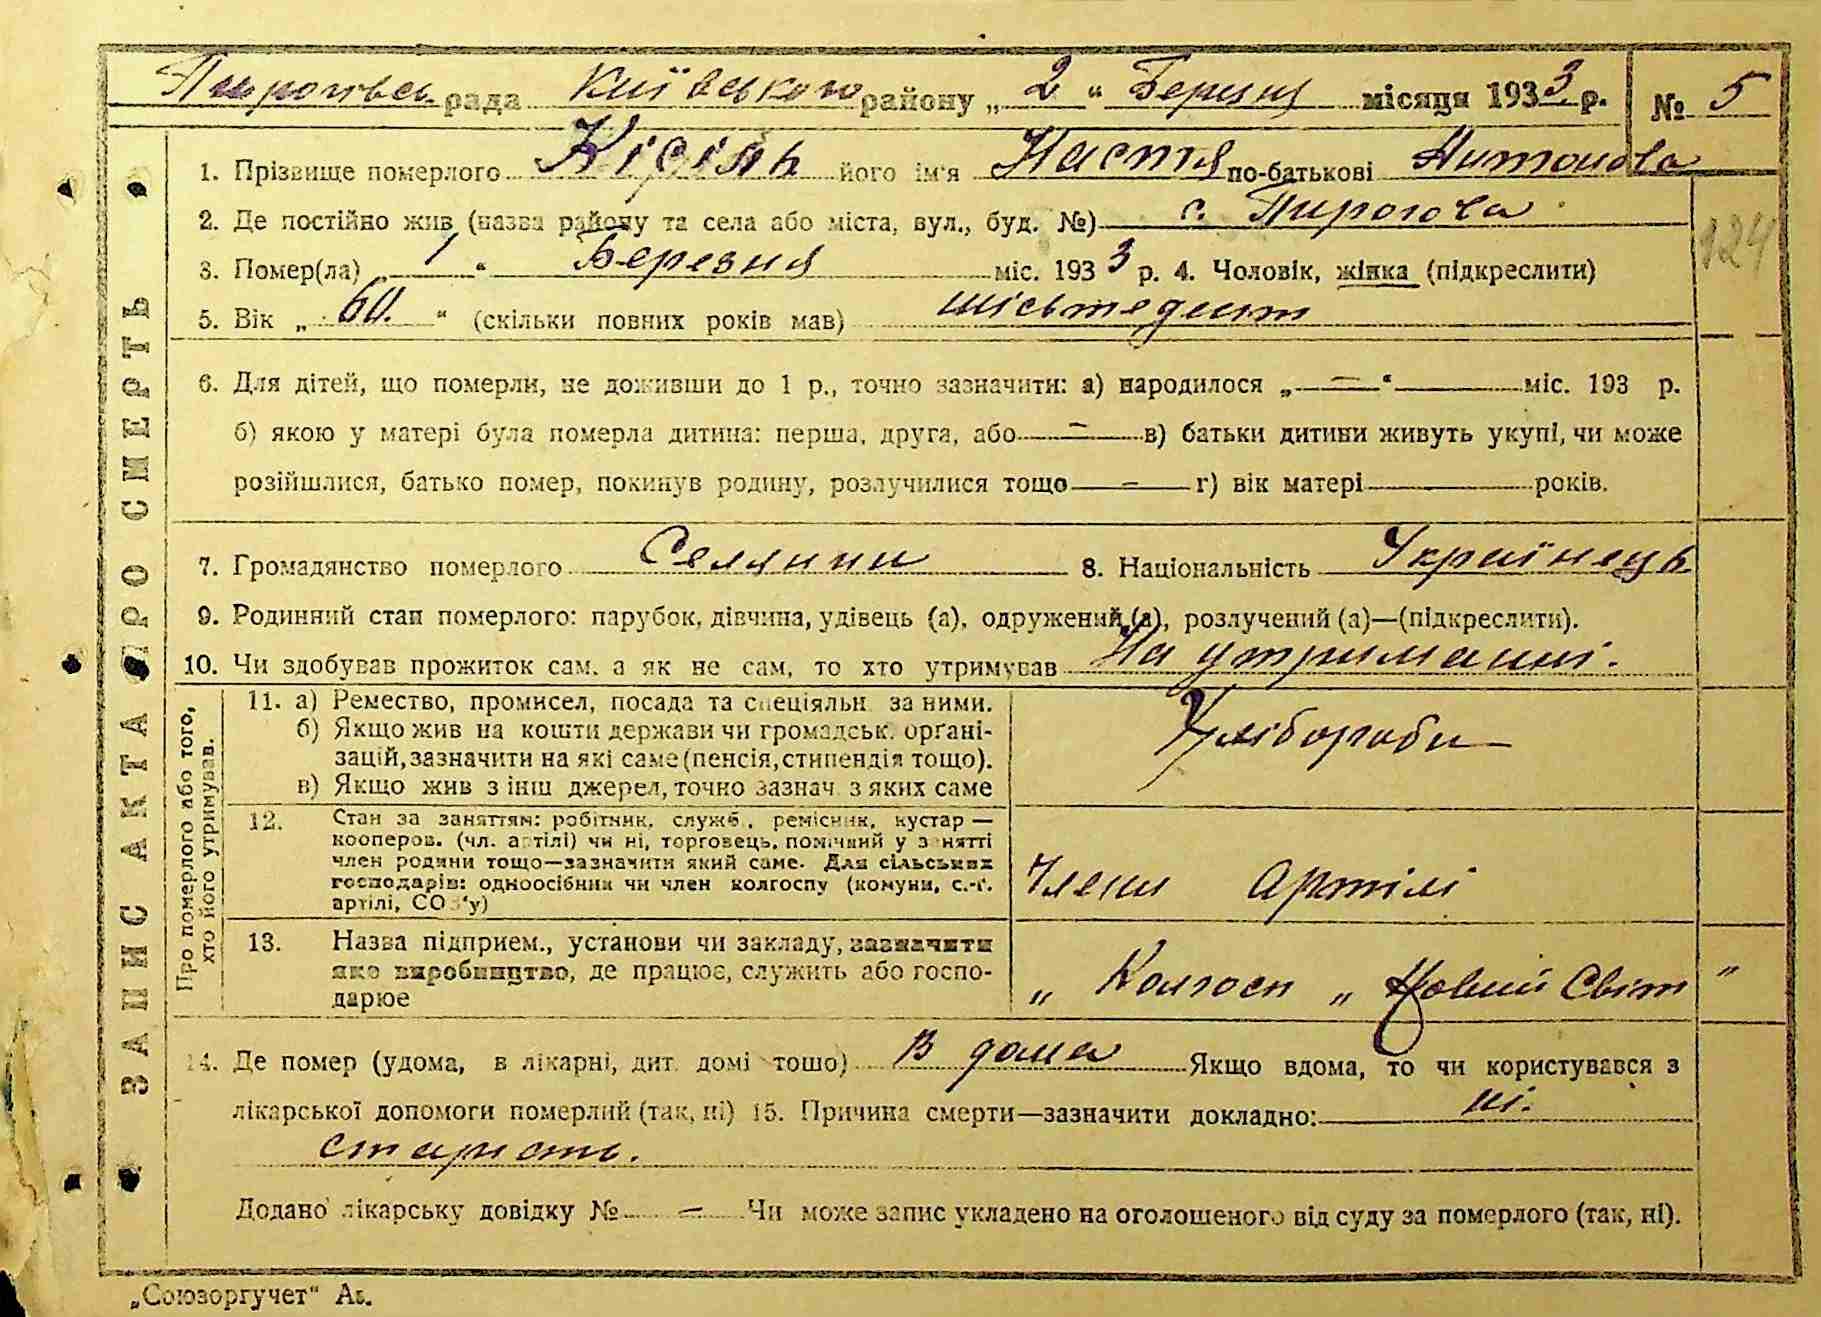 Пирогівсь рада Київського району „2“ Березня місяця 1933 р. № 5
1. Прізвище померлого Кісіль його ім'я Настя по-батькові Антонова
2. Де постійно жив (назва району та села або міста, вул., буд. №) с. Пирогова
124
3. Помер(ла) „1“ Березня міс. 1933 р. 4. Чоловік, жінка (підкреслити)
5. Вік „60.“ (скільки повних років мав) шісьтедсят
6. Для дітей, що померли, не доживши до 1 р., точно зазначити: а) народилося „—“ міс. 193 р.
б) якою у матері була померла дитина: перша, друга, або — в) батьки дитини живуть укупі, чи може
розійшлися, батько помер, покинув родину, розлучилися тощо — г) вік матері — років.
7. Громадянство померлого Селянин 8. Національність Українець
9. Родинний стан померлого: парубок, дівчина, удівець (а), одружений (а), розлучений (а)—(підкреслити).
10. Чи здобував прожиток сам. а як не сам, то хто утримував На утриманні.
ЗАПИС АКТА ПРО СМЕРТЬ
Про померлого або того,
хто його утримував.
11. а) Ремество, промисел, посада та спеціяльн. за ними.
б) Якщо жив на кошти держави чи громадськ. орґані-
зацій, зазначити на які саме (пенсія, стипендія тощо).
в) Якщо жив з інш джерел, точно зазнач з яких саме
Хлібороби
12. Стан за заняттям: робітник, служб., ремісник, кустар —
кооперов. (чл. артілі) чи ні, торговець, помічний у занятті
член родини тощо—зазначити який саме. Для сільських
господарів: одноосібник чи член колгоспу (комуни, с.-г.
артілі, СОЗ'у)
Члени Артілі
13. Назва підприєм., установи чи закладу, зазначити
яке виробництво, де працює, служить або госпо-
дарює
„ Колгосп „ Новий Світ "
14. Де помер (удома, в лікарні, дит. домі тощо) В дома Якщо вдома, то чи користувався з
лікарської допомоги померлий (так, ні) 15. Причина смерти—зазначити докладно: ні.
старість.
Додано лікарську довідку № — Чи може запис укладено на оголошеного від суду за померлого (так, ні).
„Союзоргучет“